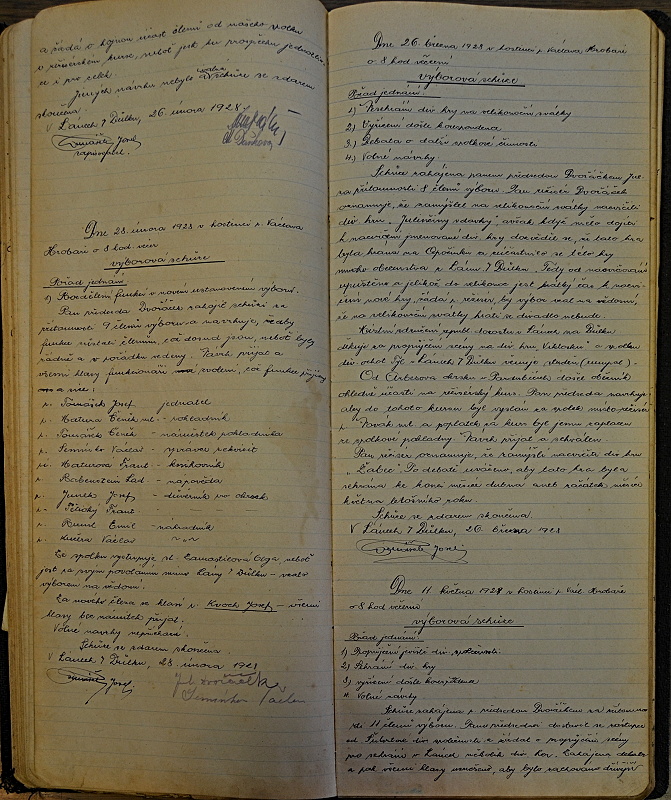 a žádá o hojnou účast členů od našeho spolku
v režisérském kurse, neboť jest ku prospěchu jednotliv-
ce i pro celek.
Jiných návrhů nebylo schůze se zdarem
skončena
V Lánech n/Důlku, 26. února 1928
Tomášek Josef
zapisovatel.
Dne 28. února 1928 v hostinci p. Václava
Hrobaře o 8 hod. več.
výborová schůze
Pořad jednání
1) Rozdělení funkcí v novém ustanoveném výboru.
Pan předseda Dvořáček zahájil schůzi za
přítomnosti 9 členů výboru a navrhuje, žeby
funkce zůstali členům, což dosud jsou, neboť byly
řádně a v pořádku vedeny. Návrh přijat a
všemi hlasy funkcionáři zvoleni, což funkce přijímají
a sice:
p. Tomášek Josef jednatel
p. Matura Čeněk ml. - pokladník
p. Tomášek Čeněk - náměstek pokladníka
p. Václav - správce rekvisit
p. Maturova Frant. - knihovník
p. Rabenstein Lad. - napověda
p. Junek Josef - důvěrník pro okrsek
p. Frant
p. Emil - náhradník
p. Kučera Václav - " - "
Ze spolku vystupuje sl. Olga neboť
jest za svým povoláním mimo Lány n/Důlku - vzato
výborem na vědomí.
Za nového člena se hlásí p. Kvoch Josef - všemi
hlasy bez námitek přijat.
Volné návrhy nepřicházejí.
Schůze se zdarem skončena
V Lánech n/Důlku, 28. února 1928
Tomášek Josef
Dne 26. března 1928 v hostinci p. Václava Hrobaře
o 8 hod večerní
výborová schůze
Pořad jednání:
1) Sehrání div. hry na velikonoční svátky
2) Vyřízení došlé korespondence
3) Debata o další spolkové činnosti
4) Volné návrhy.
Schůze zahájena panem předsedou Dvořáčkem Jul.
za přítomnosti 8 členů výboru. Pan režisér Dvořáček
oznamuje, že zamýšlel na velikonoční svátky nacvičiti
div. hru "Jedenáctý vdovky", avšak když mělo dojíti
k nacvičení jmenované div. hry dozvěděl se, že tato hra
byla hrána na Opočínku a zúčastnilo se této hry
mnoho obecenstva z Lánů n/Důlku. Tedy od nacvičování
upuštěno a jelikož do velikonoc jest krátký čas k nacvi-
čení nové hry, žádá p. režisér, by výbor vzal na vědomí,
že na velikonoční svátky hráti se divadlo nebude.
Místní sdružení republ. dorostu v Lánech na Důlku
děkuje za propůjčení scény na div. hru "Viktorka" a spolku
div. ochot. Tyl v Lánech n/Důlku věnuje
Od okrsku v Pardubicích došel oběžník
ohledně účasti na režisérský kurs. Pan předseda navrhuje
aby do tohoto kursu byl vyslán za spolek místorežisér
p. Novák ml. a poplatek za kurs byl jemu zaplacen
ze spolkové pokladny. Návrh přijat a schválen.
Pan režisér oznamuje, že zamýšlí nacvičiti div. hru
"Žabec". Po debatě uváženo, aby tato hra byla
sehrána ke konci měsíce dubna aneb začátek měsíce
května letošního roku.
Schůze se zdarem skončena.
V Lánech n/Důlku, 26. března 1928
Tomášek Josef
Dne 11 května 1928 v hostinci p. Václ. Hrobaře
o 8 hod večerní
výborová schůze
Pořad jednání:
1) Propůjčení jeviště div. společnosti
2) Sehrání div. hry
3) vyřízení došlé korespondence
4. Volné návrhy
Schůze zahájena p. předsedou Dvořáčkem za přítomno-
sti 11 členů výboru. Panu předsedovi dostavil se zástupce
od div. společnosti a žádal o propůjčení scény
pro sehrání v Lánech několik div. her. Zahájena debata
a pak všemi hlasy usneseno, aby bylo zachováno dřívější